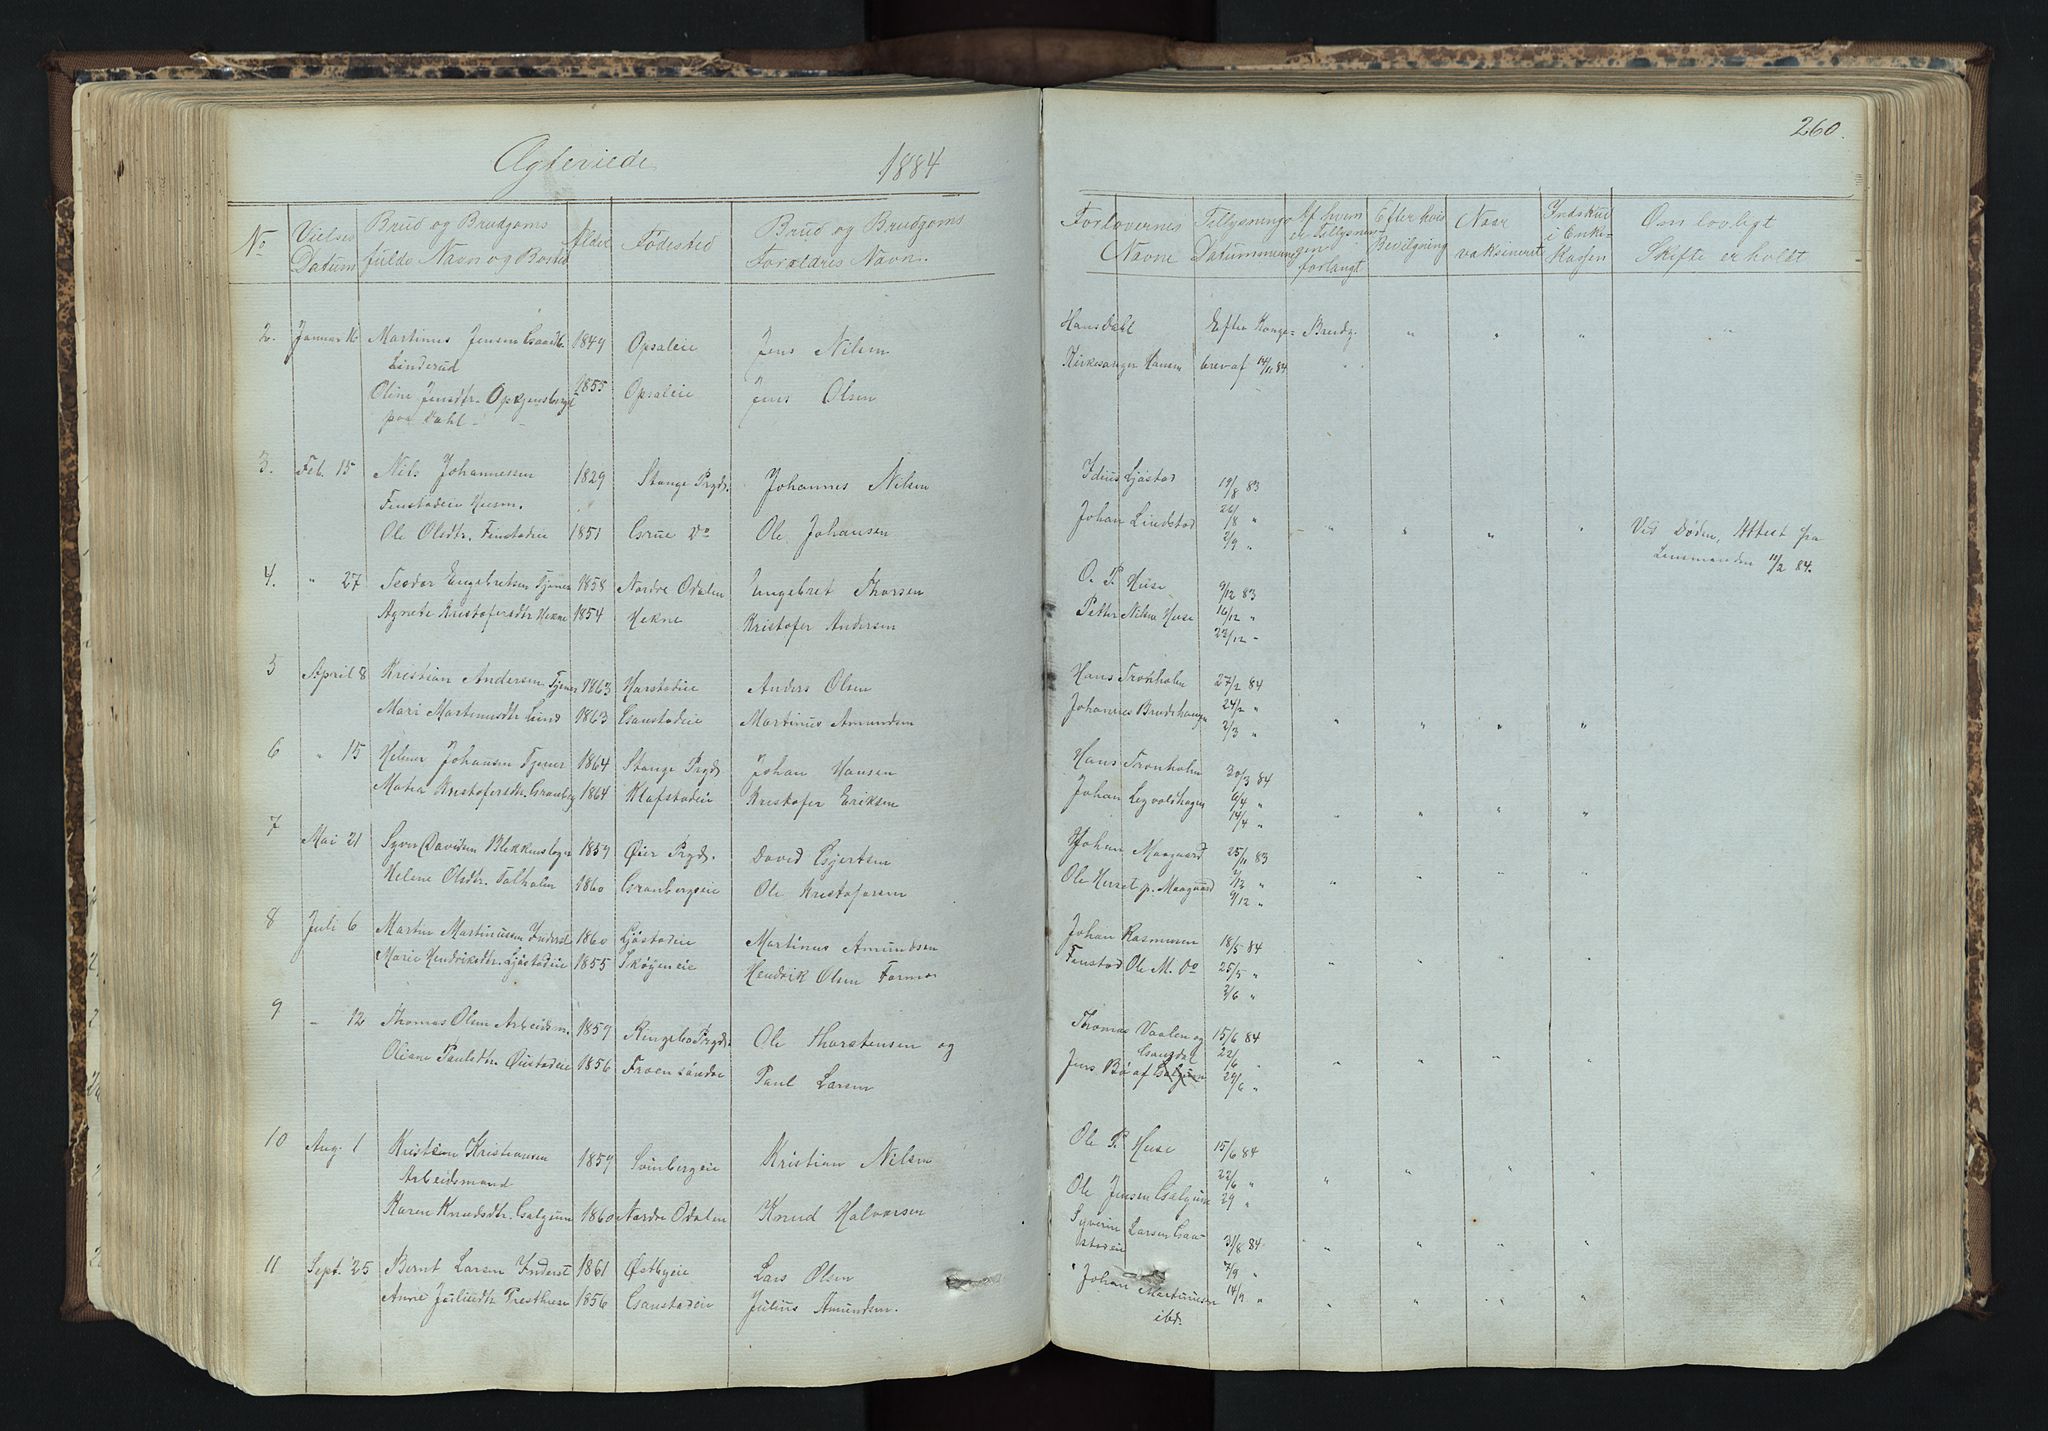 260.
Ægteviede 1884
No
Vielses Datum
Brud og Brudgoms fulde Navn og Bosted
Alder
Fødested
Brud og Brudgoms Forældres Navn.
Forlovernes Navne
Tillysnings Datummerne
Af hvem er Tillysningen forlangt
Efter hvis Bevilgning
Naar vaksineret
Indskud i Enke-Kassen
Om lovligt Skifte er holdt
2. Januar 16 Martinus Jensen 1849 Opsaleie Jens Nilsen Hans Dahl Efter Konge- Brudg. " " " "
Linderud Kirkesanger Hansen brev af
Oline Jensdtr. 1855 Opsaleie Jens Olsen
paa Dahl
3. Feb. 15 Nils Johannessen 1829 Stange Prgd. Johannes Nilsen Ideus Ljøstad 19/8 83
Finstadeie Husm. Johan Lindstad 26/8 "
Ole Olsdtr. Finstadeie 1851 Grue Do Ole Johansen 2/9 " Ved Døden, Attest fra
Lensmanden 10/2 84.
4. " 27 Teodor Engebretsen Tjener 1858 Nordre Odalen Engebret Thorsen O. P. Huse 9/12 83
Agnete Kristofersdtr Hekne 1854 Hekne Kristofer Andersen Petter Nilsen Huse 16/12 "
23/12 -
5 April 8 Kristian Andersen Tjener 1863 Harstadeie Anders Olsen Hans Tronholm 27/2 84
Mari Martinusdtr Lund 1863 Gaustadeie Martinus Amundsen Johannes Brudshaugen 24/2 "
2/3 "
6 " 15 Helmer Johansen Tjener 1864 Stange Prgd Johan Hansen Hans Tronholm 30/3 84
Matea Kristofersdtr. Granberg 1864 Klafstadeie Kristofer Eriksen Johan 6/4 "
14/4 "
7 Mai 21 Syver Davidsen 1859 Øier Prgd. David Gjertsen Johan Maagaard 25/11 83
Helene Olsdtr. Talhalen 1860 Granbergseie Ole Kristofersen Ole Herset p. Maagaard 2/12 "
9/12 "
8 Juli 6 Martin Martinussen Inderst 1860 Ljøstadeie Martinus Amundsen Johan Rasmusen 18/5 84
Marie Hendriksdtr. Ljøstadeie 1855 Skøgeneie Hendrik Olsen Formo Finstad Ole M. Do 25/5 "
2/6 "
9 - 12 Thomas Olsen Arbeidsm. 1859 Ringebo Prgd. Ole Thorstensen og Thomas Vaalen og 15/6 84
Oliane Paulsdtr. Øustadeie 1856 Paul Larsen Jens Bø af 22/6 "
29/6 "
10 Aug. 1 Kristian Kristiansen 1859 Svinbergeie Kristian Nilsen Ole P. Huse 15/6 84
Arbeidsmand 22/6 "
Karen Knudsdtr. Galgum 1860 Nordre Odalen Knud Halvorsen Ole Jensen Galgum 29 "
11 Sept. 25 Bernt Larsen Inderst 1861 Østbyeie Lars Olsen Syverin Larsen Gaustadeie 31/8 84
7/9 "
Anne Juliusdtr Presthusen 1856 Gaustadeie Julius Amundsen. Johan Martinusen 14/9 "
ibd.